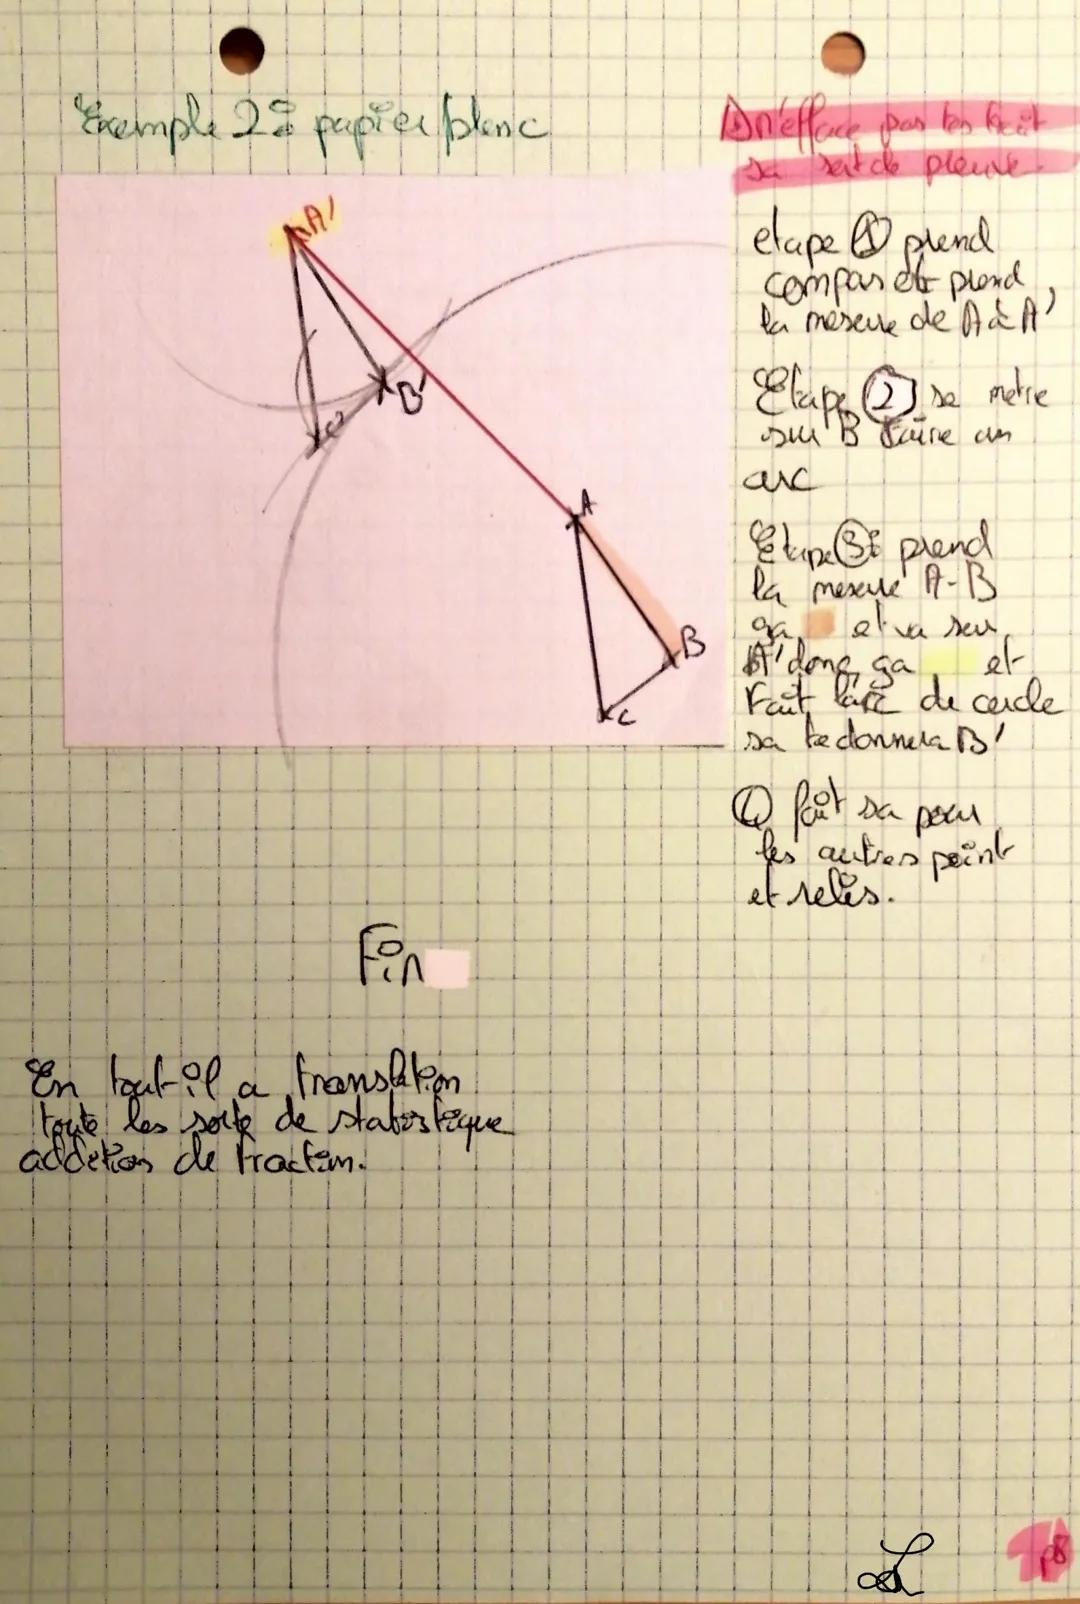 Exemple 2: papier blanc
⚠ n'efface pas tes trait
sa sert de pleuve.
A'
B'
C'
A
B
C
etape ① prend
compas et prend
la meseure de A à A'
Etape ② se metre
sur B faire un
arc
Etape ③: prend
la meseure A-B
ça et va sur
A' donc ça et
fait l'arc de cercle
sa te donnera B'
④ fait sa pour
les autres point
et reliés.
Fin
En tout il a translation
toute les sorte de statistique
addetion de fraction.
p8